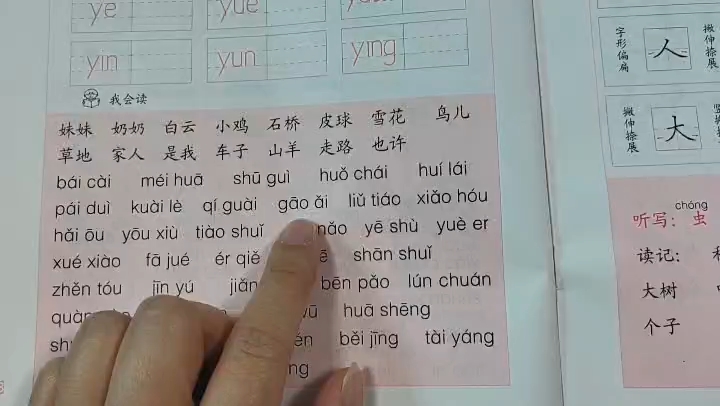 ye yue
yin yun ying
我会读
妹妹 奶奶 白云 小鸡 石桥 皮球 雪花 鸟儿
草地 家人 是我 车子 山羊 走路 也许
bái cài méi huā shū guì huǒ chái huí lái
pái duì kuài lè qí guài gāo ǎi liǔ tiáo xiǎo hóu
hǎi ōu yōu xiù tiào shuǐ nǎo yē shù yuè er
xué xiào fā jué ér qiě shān shuǐ
zhěn tóu jīn yú bēn pǎo lún chuán
huā shēng
běi jīng tài yáng
字形偏扁 人 撇伸捺展
撇伸捺展 大
chóng
听写: 虫
读记:
大树
个子